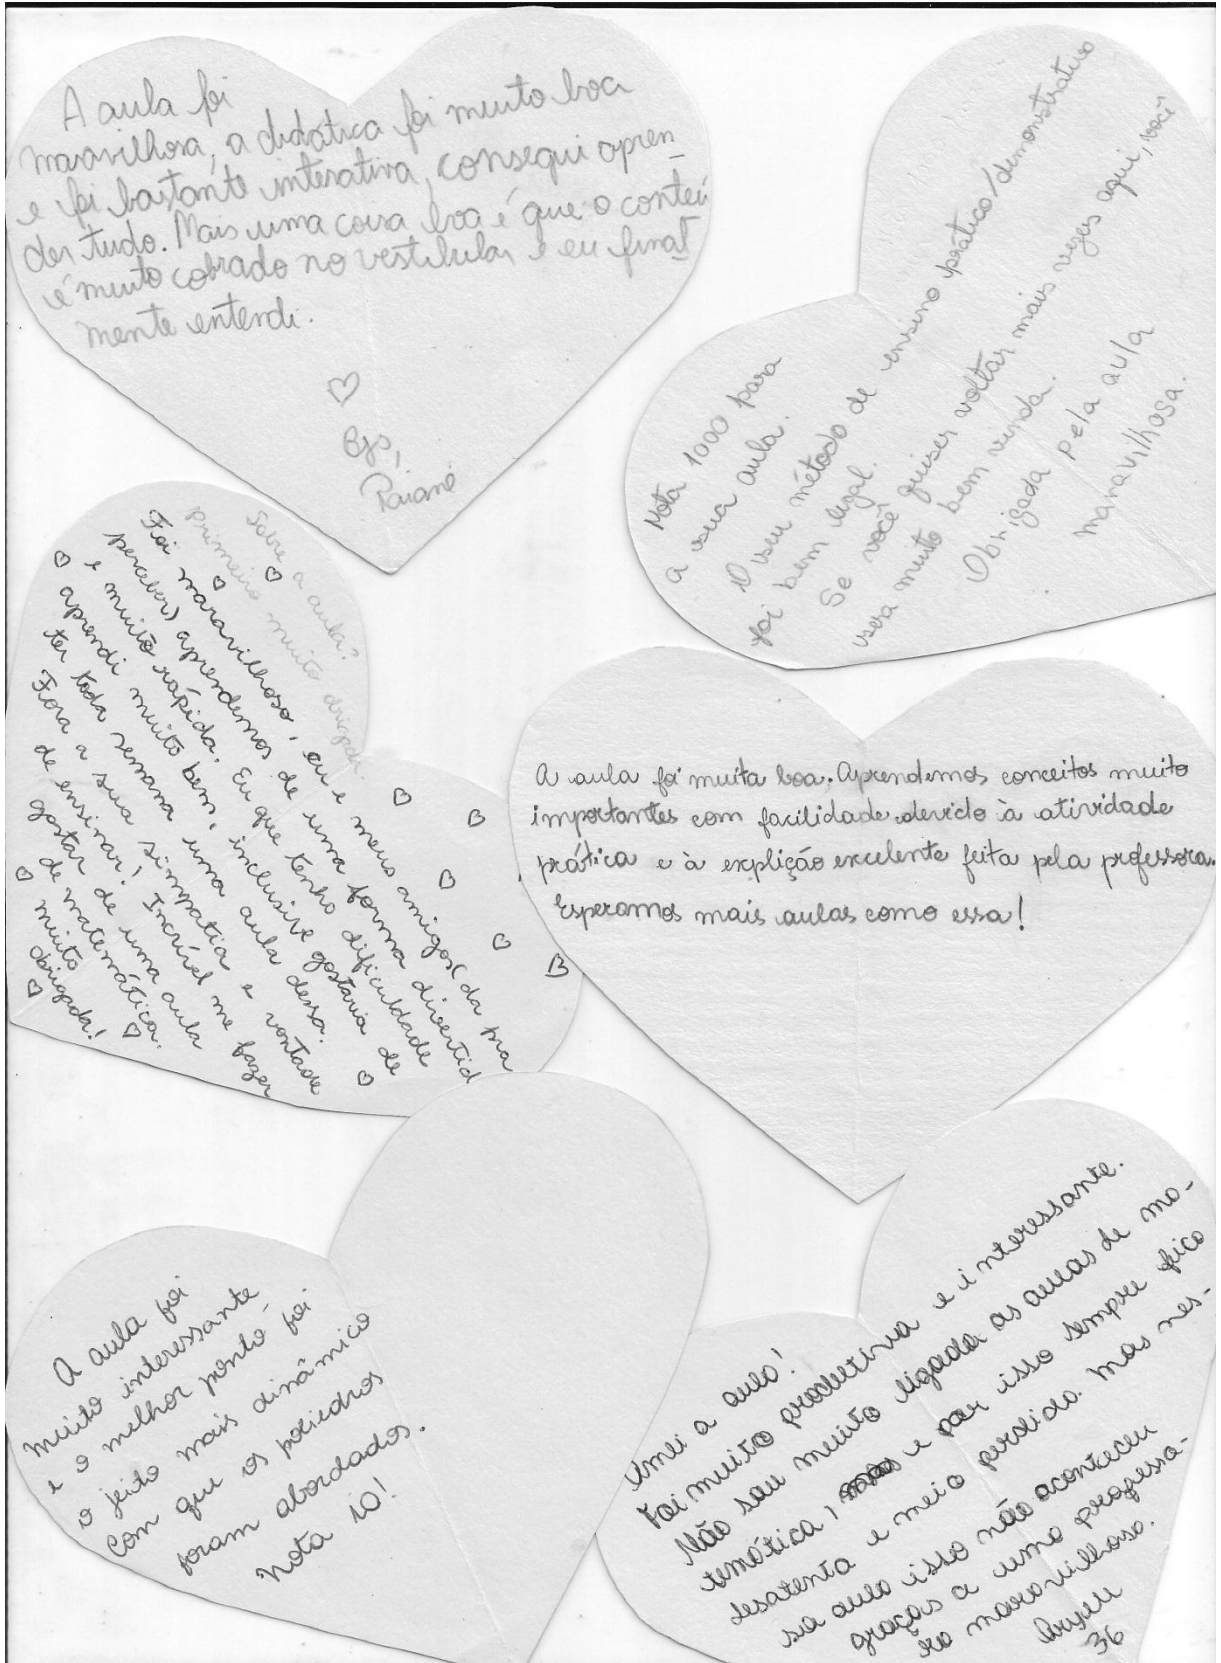 A aula foi
maravilhosa, a didática foi muito boa
e foi bastante interativa, consegui apren_
der tudo. Mais uma coisa boa é que o conteú
é muito cobrado no vestibular e eu final_
mente entendi.
♡
Bjs,
Nota 1000 para
a sua aula.
O seu método de ensino prático/demonstrativo
foi bem legal.
Se você quiser voltar mais vezes aqui, você
será muito bem vinda.
Obrigada pela aula
maravilhosa.
Sobre a aula?
primeiro muito obrigada.
Foi maravilhoso, eu e meus amigos (da pra
perceber) aprendemos de uma forma divertid
e muito rápida. Eu que tenho dificuldade
aprendi muito bem, inclusive gostaria de
ter toda semana uma aula dessa.
Fora a sua simpatia e vontade
de ensinar! Incrível me fazer
gostar de uma aula
de matemática.
muito
obrigada!
A aula foi muita boa. Aprendemos conceitos muito
importantes com facilidade devido à atividade
prática e à explição excelente feita pela professora.
Esperamos mais aulas como essa!
A aula foi
muito interessante
e o melhor ponto foi
o jeito mais dinâmico
com que os poliedros
foram abordados.
Nota 10!
Amei a aula!
Foi muito produtiva e interessante.
Não sou muito ligada as aulas de ma-
temática, e por isso sempre fico
desatenta e meio perdida. Mas nes-
sa aula isso não aconteceu
graças a uma professo-
ra maravilhosa.
36